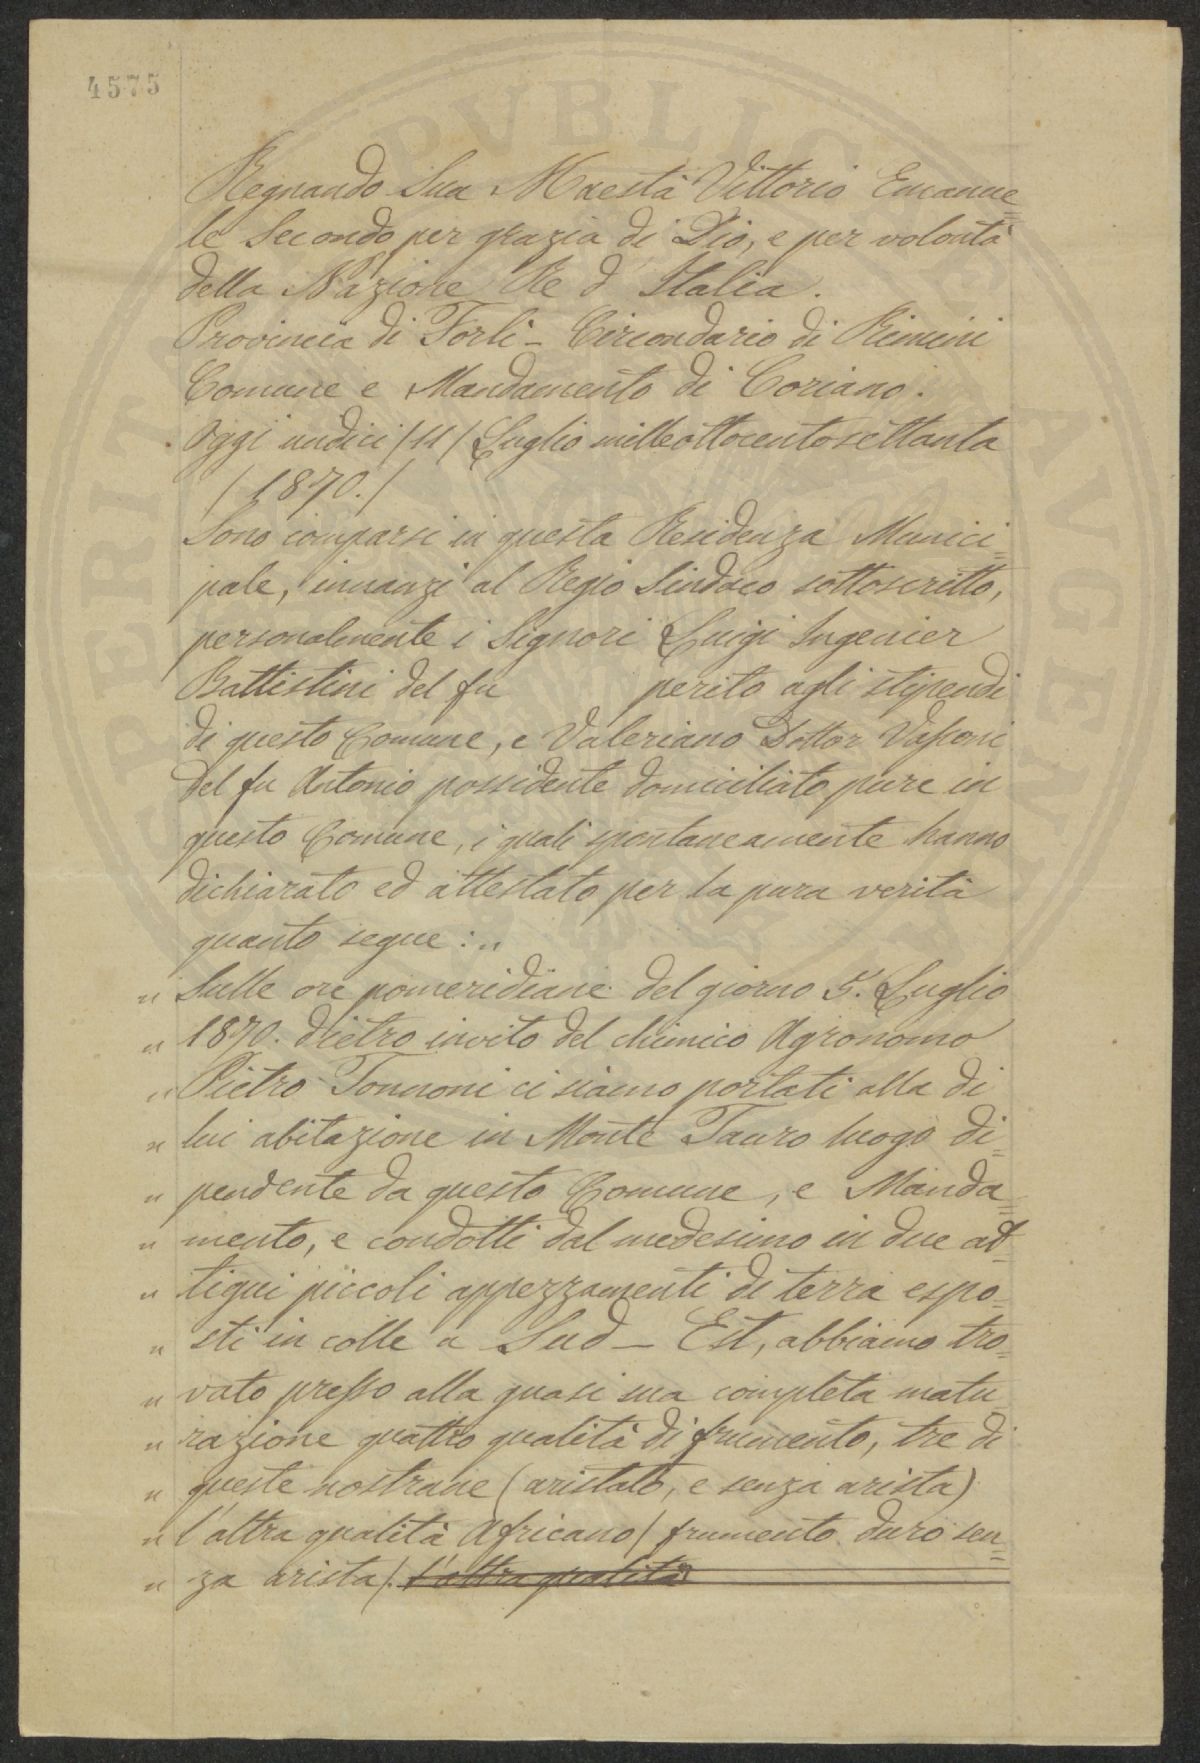 4575
Regnando Sua Maestà Vittorio Emanue=
le Secondo per grazia di Dio, e per volontà
della Nazione Re d'Italia.
Provincia di Forlì - Circondario di Rimini
Comune e Mandamento di Coriano.
Oggi undici /11/ Luglio milleottocentosettanta
/1870./
Sono comparsi in questa Residenza Munici=
pale, innanzi al Regio Sindaco sottoscritto,
personalmente i Signori Luigi Ingenier
Battistini del fu perito agli stipendi
di questo Comune, e Valeriano Dottor Vassoni
del fu Antonio possidente domiciliato pure in
questo Comune, i quali spontaneamente hanno
dichiarato ed attestato per la pura verità
quanto segue: „
„ Sulle ore pomeridiane del giorno 5. Luglio
„ 1870. dietro invito del chimico Agronomo
„ Pietro Tonnoni ci siamo portati alla di
„ lui abitazione in Monte Tauro luogo di=
„ pendente da questo Comune, e Manda=
„ mento, e condotti dal medesimo in due ad=
„ tigui piccoli appezzamenti di terra espo=
„ sti in colle a Sud - Est, abbiamo tro=
„ vato presso alla quasi sua completa matu=
„ razione quattro qualità di frumento, tre di
„ queste nostrane (aristato, e senza arista)
„ l'altra qualità Africano / frumento duro sen=
„ za arista /. l'altra qualità
PERITA PVBLICAE AVGENT